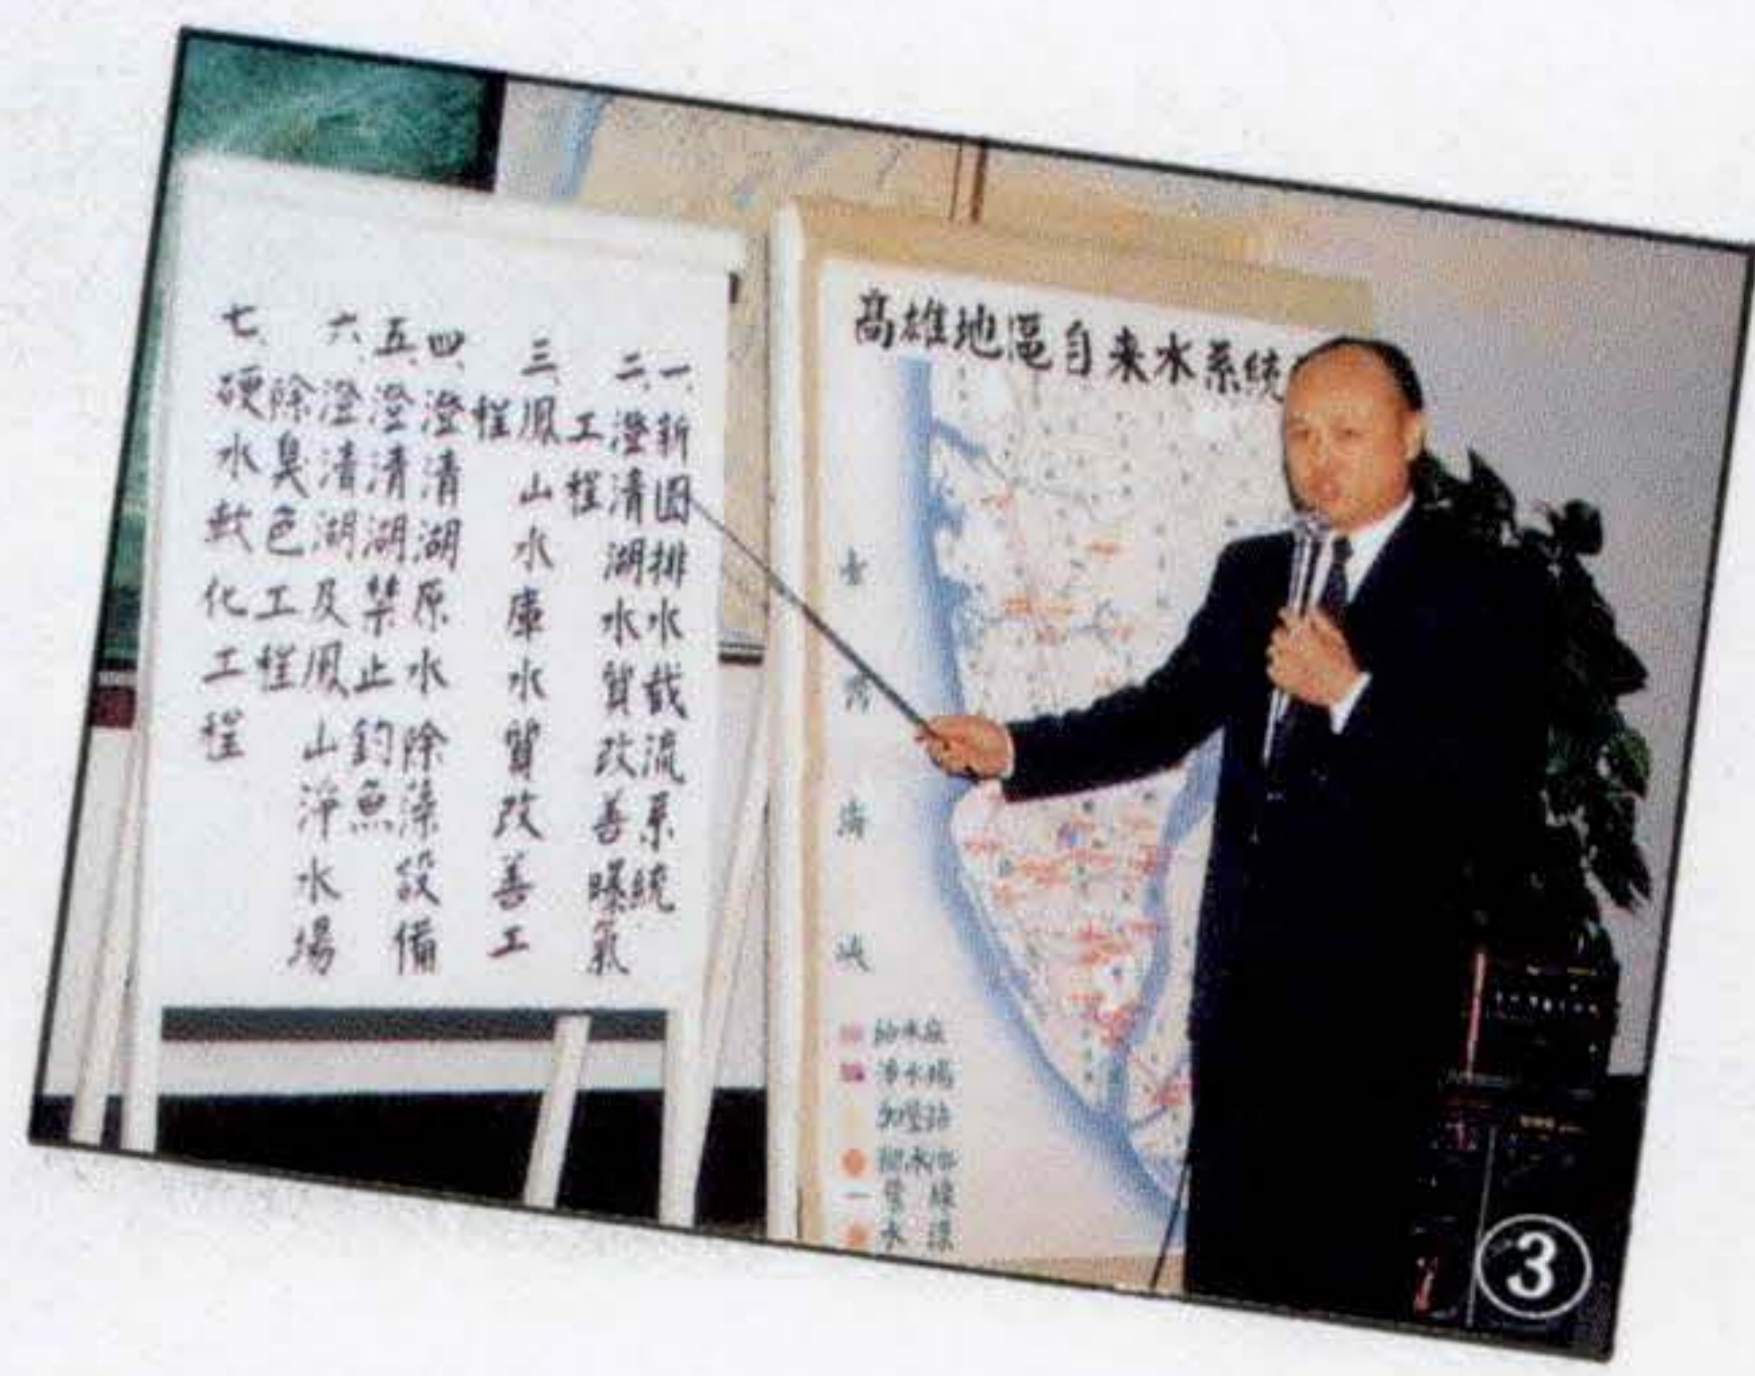 高雄地區自来水系統
一、新園排水截流系統
二、澄清湖水質改善曝氣
工程
三、鳳山水庫水質改善工
程
四、澄清湖原水除藻設備
五、澄清湖禁止釣魚
六、澄清湖及鳳山淨水場
除臭色工程
七、硬水軟化工程
台灣海峽
給水廠
淨水場
加壓站
管線
水源
3